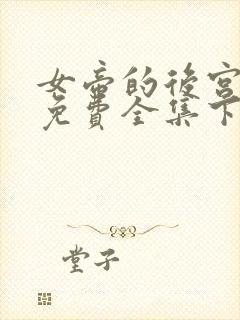 女帝的後宮
免費全集下
堂子